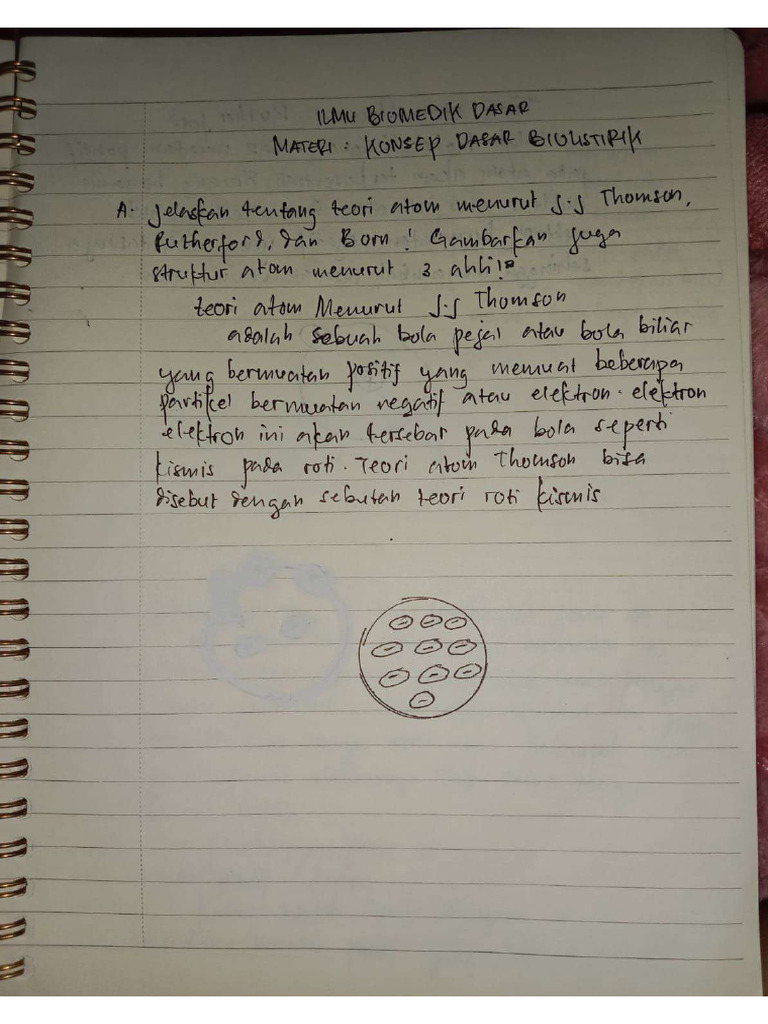 ILMU BIOMEDIK DASAR
MATERI : KONSEP DASAR BIOLISTIRIK
A. Jelaskan tentang teori atom menurut J.J Thomson,
Rutherford, dan Born! Gambarkan juga
struktur atom menurut 3 ahli!
teori atom Menurut J.J Thomson
adalah sebuah bola pejal atau bola biliar
yang bermuatan positif yang memuat beberapa
partikel bermuatan negatif atau elektron. elektron
elektron ini akan tersebar pada bola seperti
kismis pada roti. Teori atom Thomson bisa
disebut dengan sebutan teori roti kismis